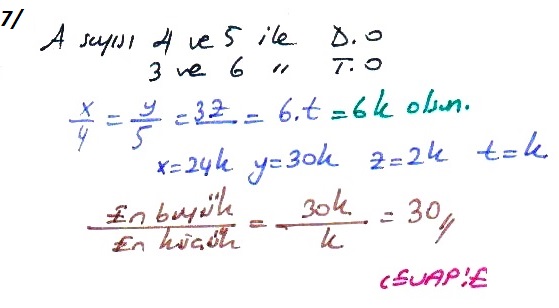 7/ A sayısı 4 ve 5 ile D.O
3 ve 6 " T.O
x/4 = y/5 = 3z = 6.t = 6k olsun.
x=24k y=30k z=2k t=k.
En büyük/En küçük = 30k/k = 30//
CEVAP:E